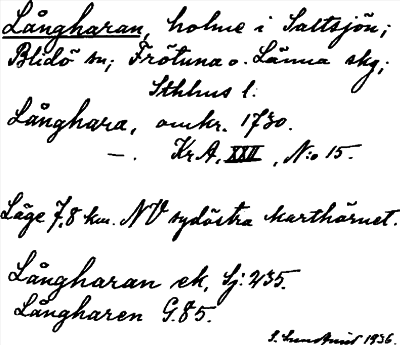 Långharan, holme i Saltsjön;
Blidö sn; Frötuna o. Länna skg;
Sthlms l.
Långhara, omkr. 1730.
—. KrA, XXII, N:o 15.
Läge 7,8 km. NV sydöstra karthörnet.
Långharan ek, Sj: 235.
Långharen G.85.
1936.